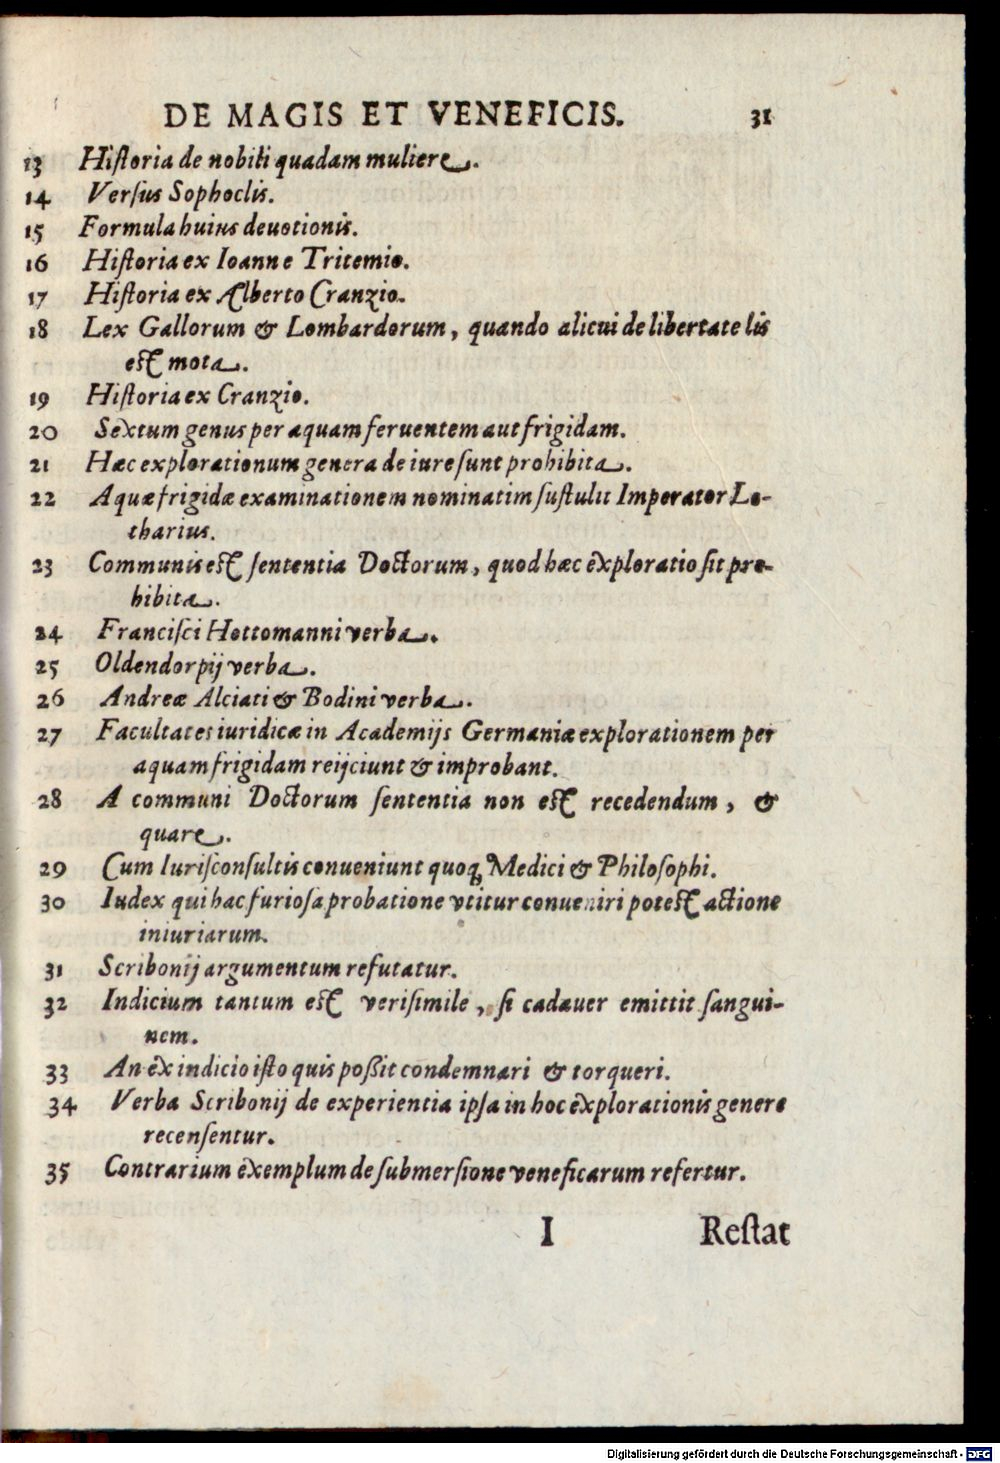 DE MAGIS ET VENEFICIS. 31
13 Hiſtoria de nobili quadam muliere.
14 Verſus Sophoclis.
15 Formula huius deuotionis.
16 Hiſtoria ex Ioanne Tritemio.
17 Hiſtoria ex Alberto Cranzio.
18 Lex Gallorum & Lombardorum, quando alicui de libertate lis
est mota.
19 Hiſtoria ex Cranzio.
20 Sextum genus per aquam feruentem aut frigidam.
21 Hæc explorationum genera de iure ſunt prohibita.
22 Aquæ frigidæ examinationem nominatim ſuſtulit Imperator Lo-
tharius.
23 Communis est ſententia Doctorum, quod hæc exploratio ſit pro-
hibita.
24 Franciſci Hottomanni verba.
25 Oldendorpij verba.
26 Andreæ Alciati & Bodini verba.
27 Facultates iuridicæ in Academijs Germaniæ explorationem per
aquam frigidam reijciunt & improbant.
28 A communi Doctorum ſententia non est recedendum, &
quare.
29 Cum Iuriſconſultis conueniunt quoq; Medici & Philoſophi.
30 Iudex qui hac furioſa probatione vtitur conueniri potest actione
iniuriarum.
31 Scribonij argumentum refutatur.
32 Indicium tantum est veriſimile, ſi cadauer emittit ſangui-
nem.
33 An ex indicio iſto quis poßit condemnari & torqueri.
34 Verba Scribonij de experientia ipſa in hoc explorationis genere
recenſentur.
35 Contrarium exemplum de ſubmerſione veneficarum refertur.
I Reſtat
Digitalisierung gefördert durch die Deutsche Forschungsgemeinschaft - DFG